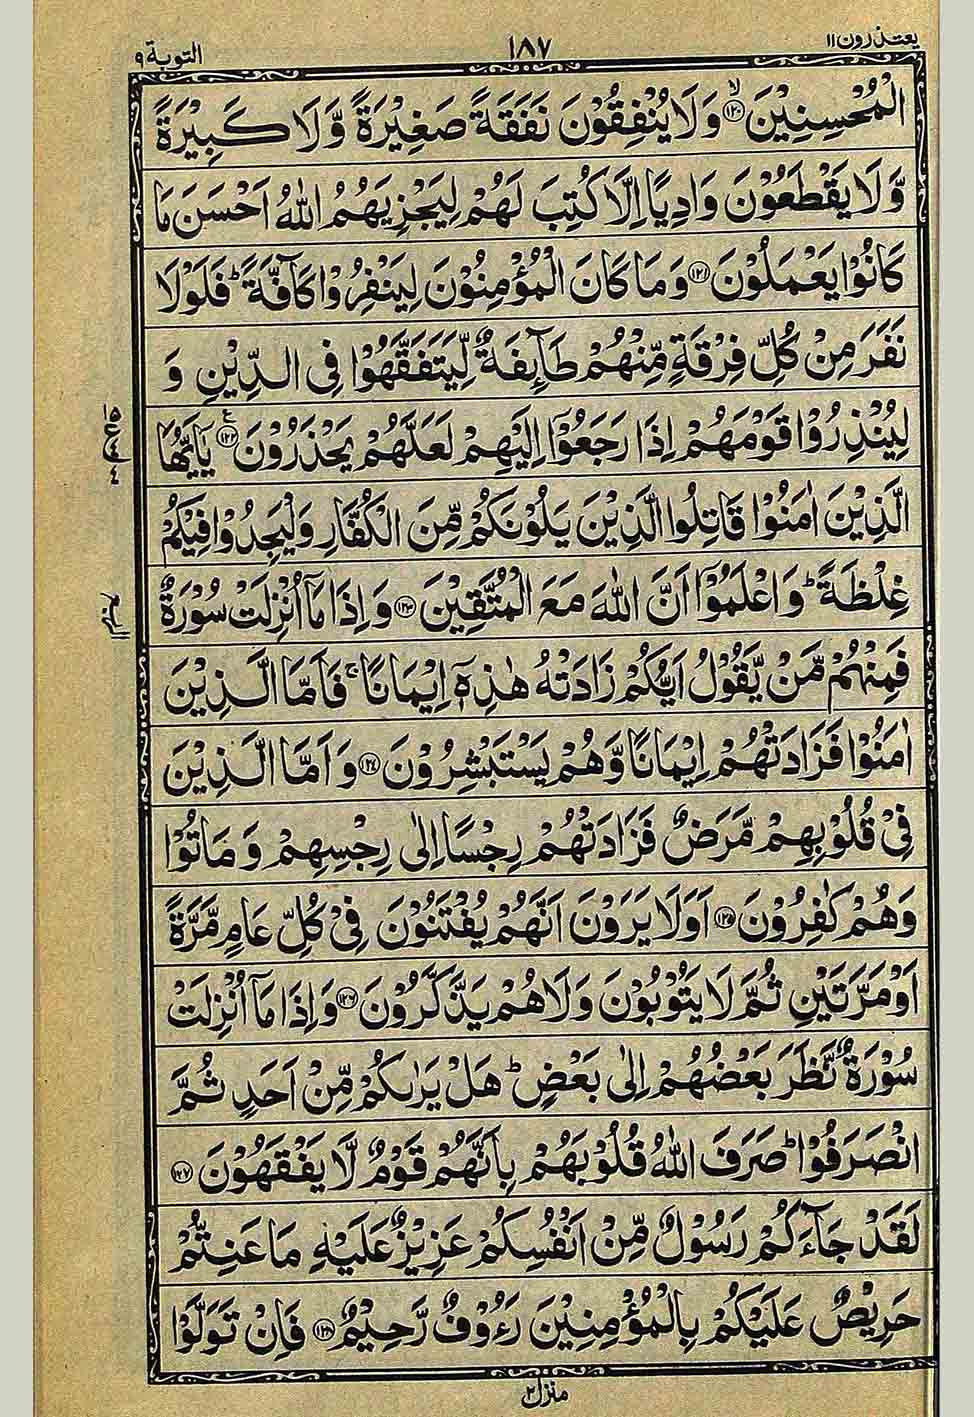 یعتذرون ۱۱
۱۸۷
التوبة ۹
الْمُحْسِنِیْنَ ﴿۱۲۰﴾ۙ وَلَا یُنْفِقُوْنَ نَفَقَةً صَغِیْرَةً وَّلَا كَبِیْرَةً
وَّلَا یَقْطَعُوْنَ وَادِیًا اِلَّا كُتِبَ لَهُمْ لِیَجْزِیَهُمُ اللّٰهُ اَحْسَنَ مَا
كَانُوْا یَعْمَلُوْنَ ﴿۱۲۱﴾ وَمَا كَانَ الْمُؤْمِنُوْنَ لِیَنْفِرُوْا كَآفَّةً ؕ فَلَوْلَا
نَفَرَ مِنْ كُلِّ فِرْقَةٍ مِّنْهُمْ طَآىِٕفَةٌ لِّیَتَفَقَّهُوْا فِی الدِّیْنِ وَ
لِیُنْذِرُوْا قَوْمَهُمْ اِذَا رَجَعُوْۤا اِلَیْهِمْ لَعَلَّهُمْ یَحْذَرُوْنَ ﴿۱۲۲﴾ع یٰۤاَیُّهَا
الَّذِیْنَ اٰمَنُوْا قَاتِلُوا الَّذِیْنَ یَلُوْنَكُمْ مِّنَ الْكُفَّارِ وَلْیَجِدُوْا فِیْكُمْ
غِلْظَةً ؕ وَاعْلَمُوْۤا اَنَّ اللّٰهَ مَعَ الْمُتَّقِیْنَ ﴿۱۲۳﴾ وَاِذَا مَاۤ اُنْزِلَتْ سُوْرَةٌ
فَمِنْهُمْ مَّنْ یَّقُوْلُ اَیُّكُمْ زَادَتْهُ هٰذِهٖۤ اِیْمَانًا ۚ فَاَمَّا الَّذِیْنَ
اٰمَنُوْا فَزَادَتْهُمْ اِیْمَانًا وَّهُمْ یَسْتَبْشِرُوْنَ ﴿۱۲۴﴾ وَاَمَّا الَّذِیْنَ
فِیْ قُلُوْبِهِمْ مَّرَضٌ فَزَادَتْهُمْ رِجْسًا اِلٰی رِجْسِهِمْ وَمَاتُوْا
وَهُمْ كٰفِرُوْنَ ﴿۱۲۵﴾ اَوَلَا یَرَوْنَ اَنَّهُمْ یُفْتَنُوْنَ فِیْ كُلِّ عَامٍ مَّرَّةً
اَوْ مَرَّتَیْنِ ثُمَّ لَا یَتُوْبُوْنَ وَلَا هُمْ یَذَّكَّرُوْنَ ﴿۱۲۶﴾ وَاِذَا مَاۤ اُنْزِلَتْ
سُوْرَةٌ نَّظَرَ بَعْضُهُمْ اِلٰی بَعْضٍ ؕ هَلْ یَرٰىكُمْ مِّنْ اَحَدٍ ثُمَّ
انْصَرَفُوْا ؕ صَرَفَ اللّٰهُ قُلُوْبَهُمْ بِاَنَّهُمْ قَوْمٌ لَّا یَفْقَهُوْنَ ﴿۱۲۷﴾
لَقَدْ جَآءَكُمْ رَسُوْلٌ مِّنْ اَنْفُسِكُمْ عَزِیْزٌ عَلَیْهِ مَا عَنِتُّمْ
حَرِیْصٌ عَلَیْكُمْ بِالْمُؤْمِنِیْنَ رَءُوْفٌ رَّحِیْمٌ ﴿۱۲۸﴾ فَاِنْ تَوَلَّوْا
منزل ۲